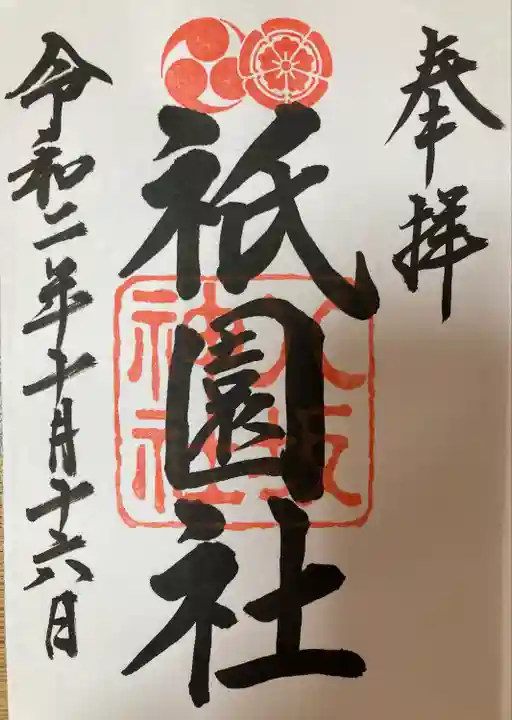 奉拝
祇園社
八坂
神社
令和二年十月十六日